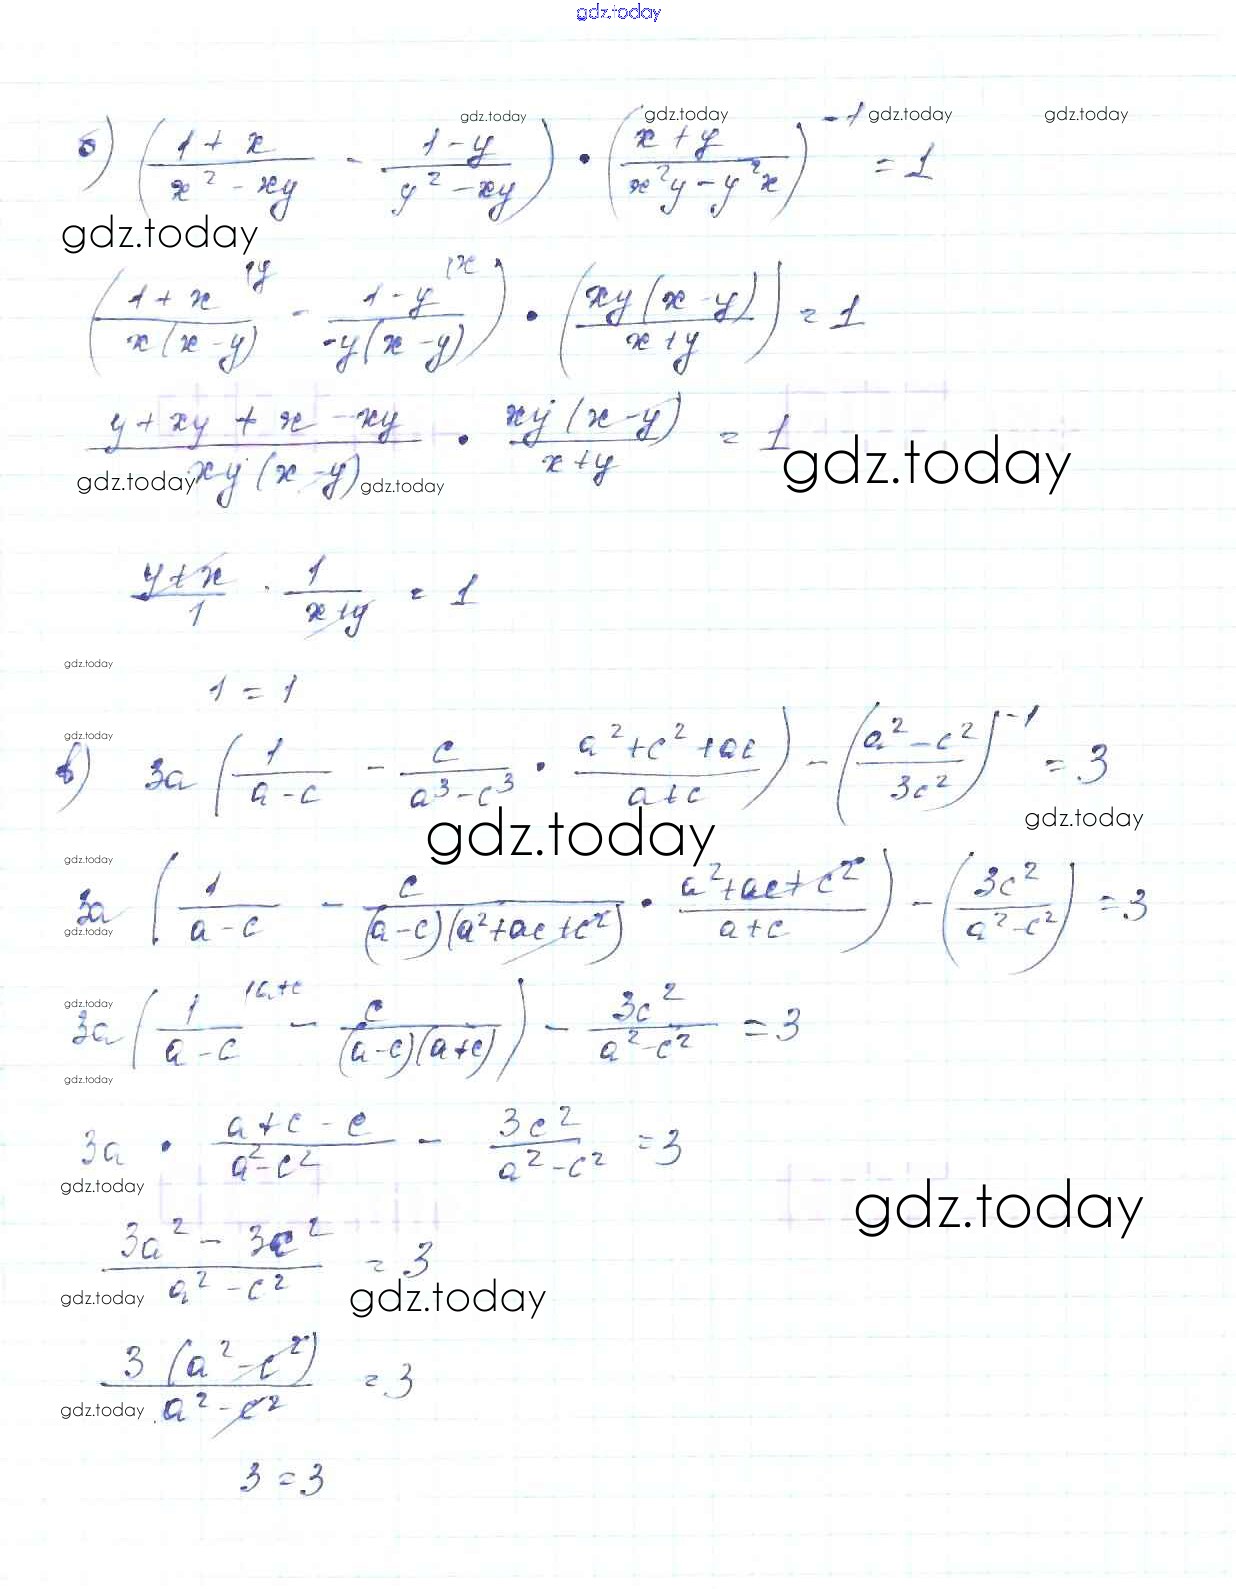 gdz.today
б) ((1+x)/(x² - xy) - (1-y)/(y² - xy)) • ((x+y)/(x²y - y²x))⁻¹ = 1
gdz.today gdz.today gdz.today gdz.today
gdz.today
((1+x)/(x(x-y)) |y - (1-y)/(-y(x-y)) |x) • (xy(x-y)/(x+y)) = 1
(y + xy + x - xy)/(xy(x-y)) • xy(x-y)/(x+y) = 1
gdz.today gdz.today gdz.today
(y+x)/1 · 1/(x+y) = 1
gdz.today
1 = 1
gdz.today
в) 3a (1/(a-c) - c/(a³-c³) • (a²+c²+ac)/(a+c)) - ((a²-c²)/(3c²))⁻¹ = 3
gdz.today gdz.today
gdz.today
3a (1/(a-c) - c/((a-c)(a²+ac+c²)) • (a²+ac+c²)/(a+c)) - (3c²/(a²-c²)) = 3
gdz.today
gdz.today
3a (1/(a-c) |a+c - c/((a-c)(a+c))) - 3c²/(a²-c²) = 3
gdz.today
3a • (a+c-c)/(a²-c²) - 3c²/(a²-c²) = 3
gdz.today gdz.today
(3a² - 3c²)/(a² - c²) = 3
gdz.today gdz.today
3(a²-c²)/(a²-c²) = 3
gdz.today
3 = 3